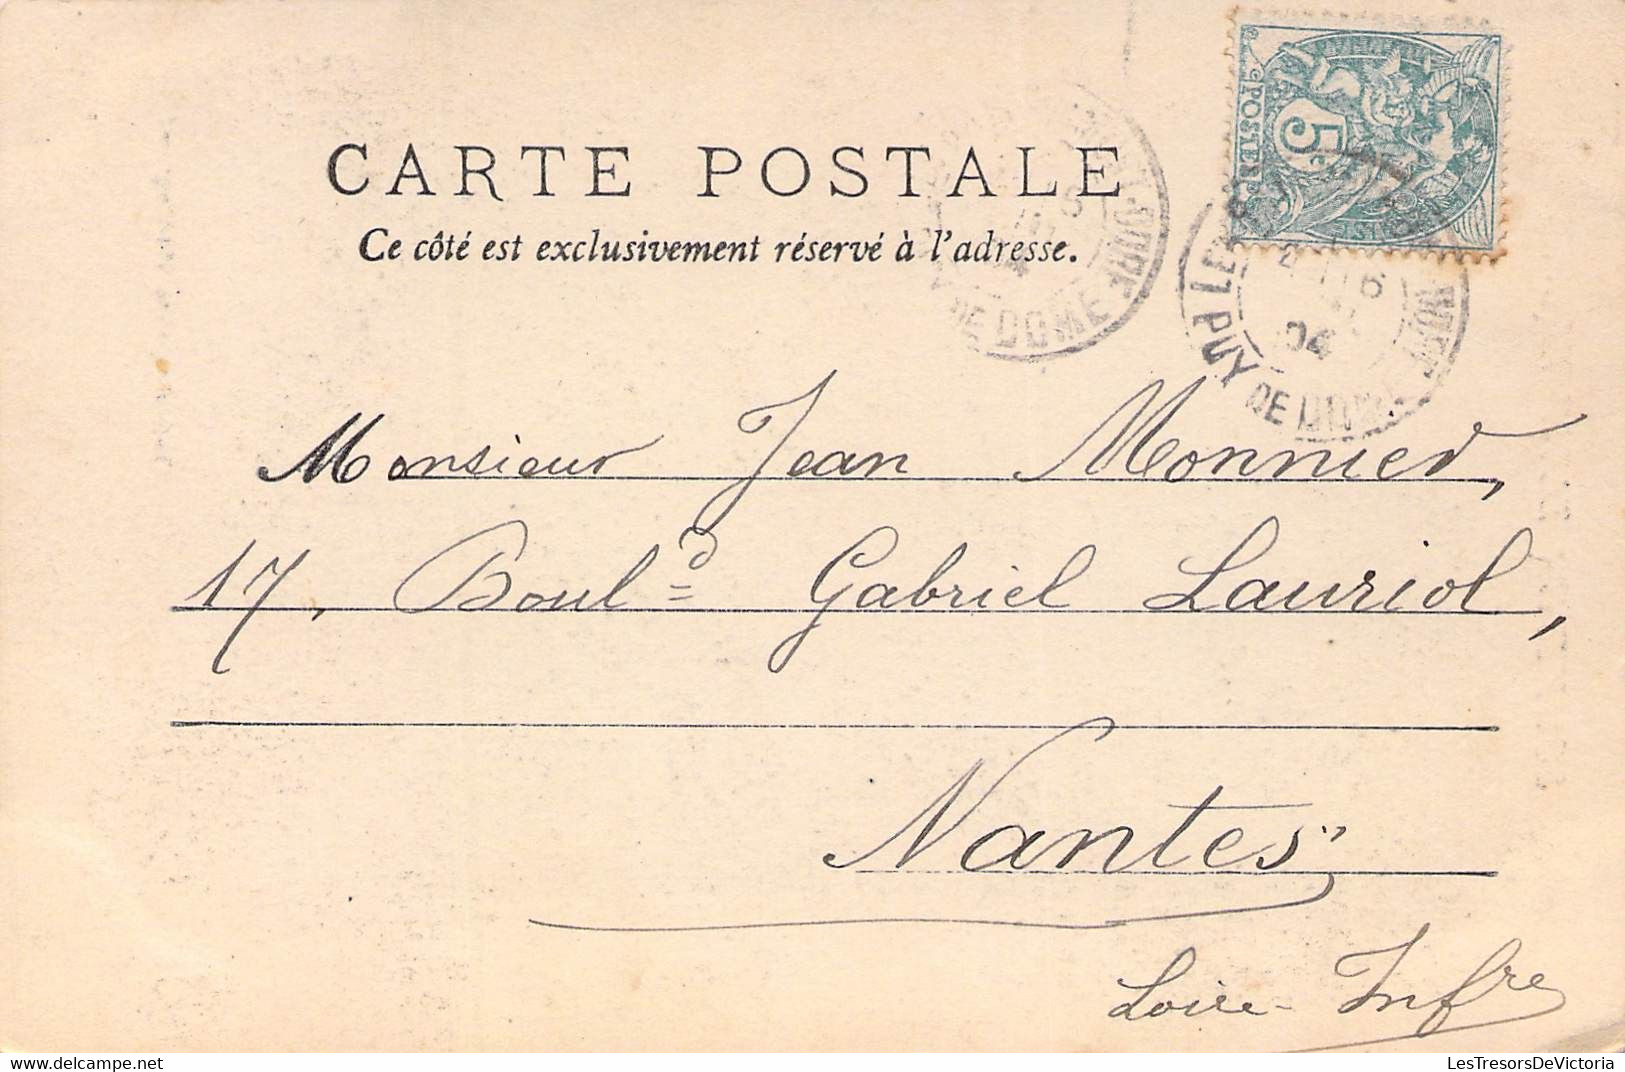 CARTE POSTALE
Ce côté est exclusivement réservé à l'adresse.
POSTES
5c
DE DOME
PUY
DE
04
Monsieur Jean Monnier,
17, Bould Gabriel Lauriol,
Nantes
Loire-Infre
LesTresorsDeVictoria